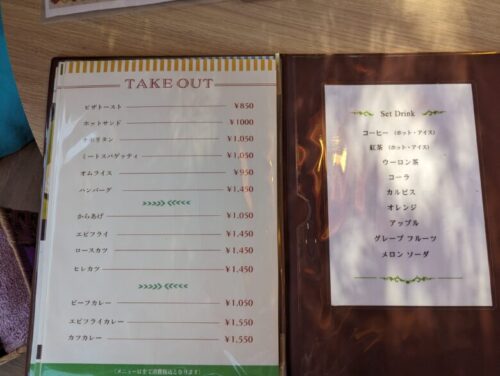 TAKE OUT
ピザトースト ¥850
ホットサンド ¥1000
ナポリタン ¥1,050
ミートスパゲッティ ¥1,050
オムライス ¥950
ハンバーグ ¥1,450
からあげ ¥1,050
エビフライ ¥1,450
ロースカツ ¥1,450
ヒレカツ ¥1,450
ビーフカレー ¥1,050
エビフライカレー ¥1,550
カツカレー ¥1,550
(メニューは全て消費税込となります)
Set Drink
コーヒー (ホット・アイス)
紅茶 (ホット・アイス)
ウーロン茶
コーラ
カルピス
オレンジ
アップル
グレープ フルーツ
メロン ソーダ